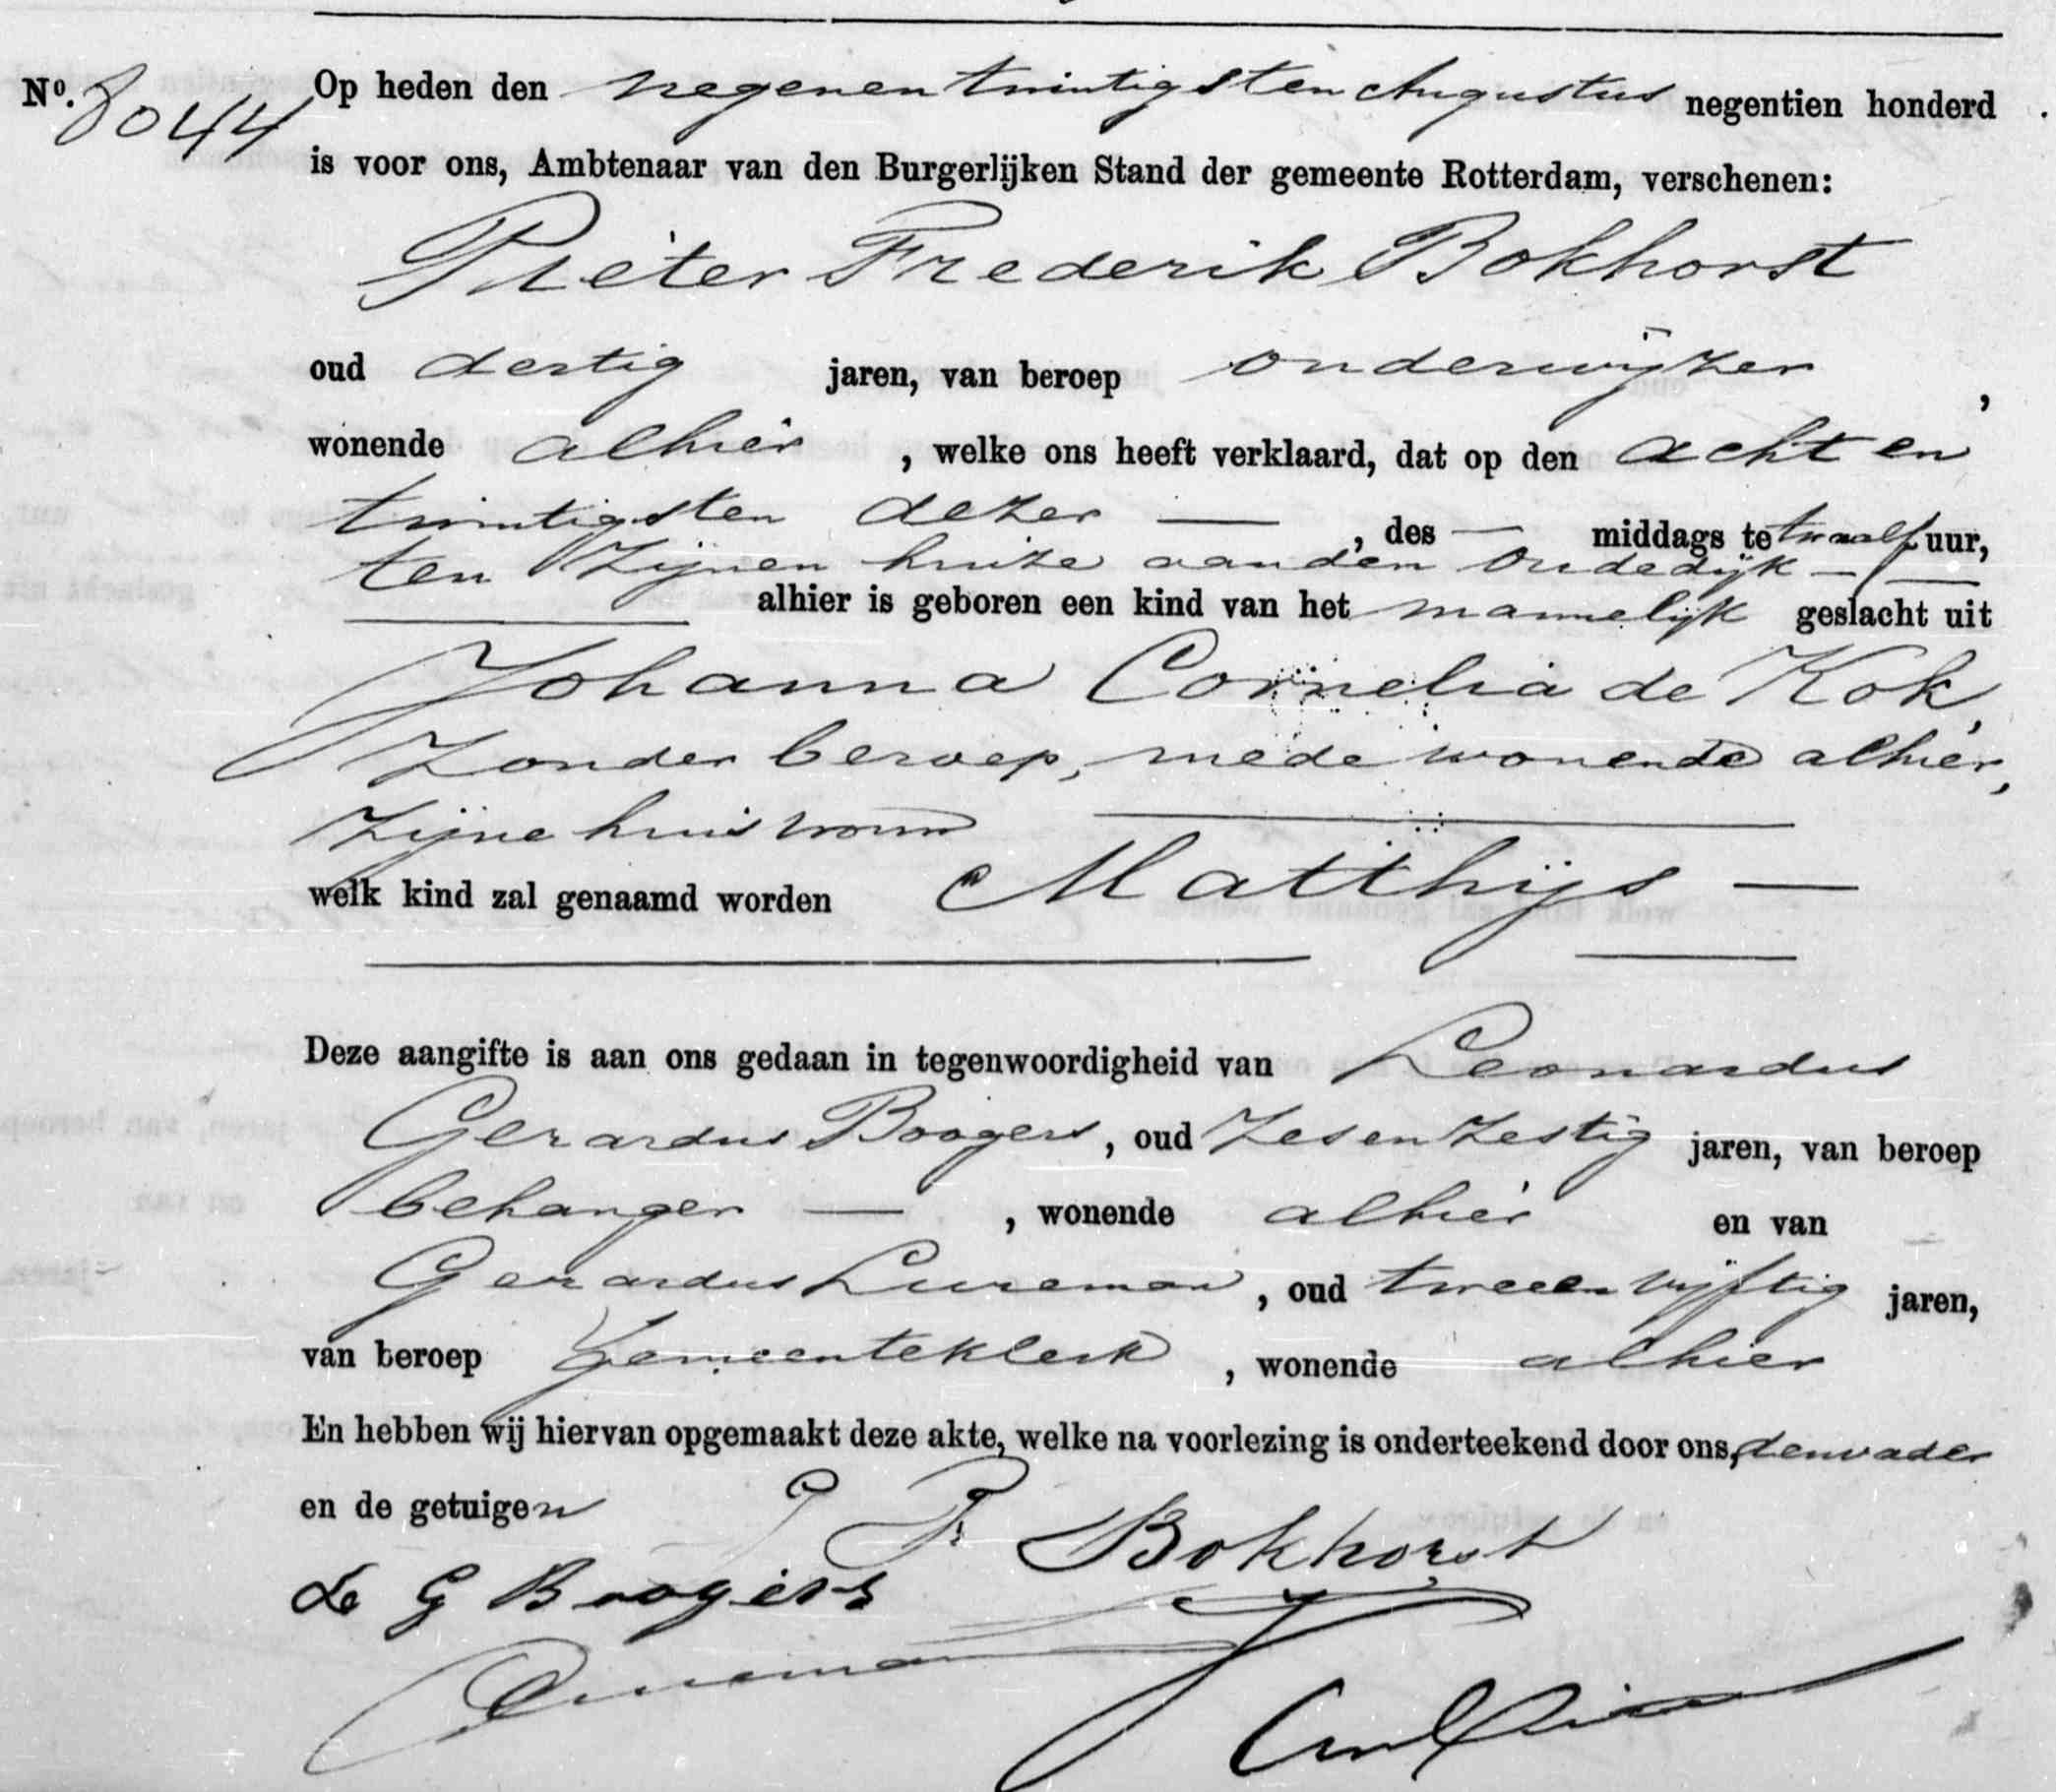 No. 8044 Op heden den negenentwintigsten Augustus negentien honderd
is voor ons, Ambtenaar van den Burgerlijken Stand der gemeente Rotterdam, verschenen:
Pieter Frederik Bokhorst
oud dertig jaren, van beroep onderwijzer,
wonende alhier, welke ons heeft verklaard, dat op den acht en
twintigsten dezer —, des — middags te twaalf uur,
ten zijnen huize aan den Oudedijk — —
alhier is geboren een kind van het mannelijk geslacht uit
Johanna Cornelia de Kok,
zonder beroep, mede wonende alhier,
zijne huisvrouw
welk kind zal genaamd worden Matthijs —
Deze aangifte is aan ons gedaan in tegenwoordigheid van Leonardus
Gerardus Boogers, oud zesenzestig jaren, van beroep
behanger —, wonende alhier en van
Gerardus Lureman, oud tweeenvijftig jaren,
van beroep gemeenteklerk, wonende alhier
En hebben wij hiervan opgemaakt deze akte, welke na voorlezing is onderteekend door ons, den vader
en de getuigen
P F. Bokhorst
Le G Boogers